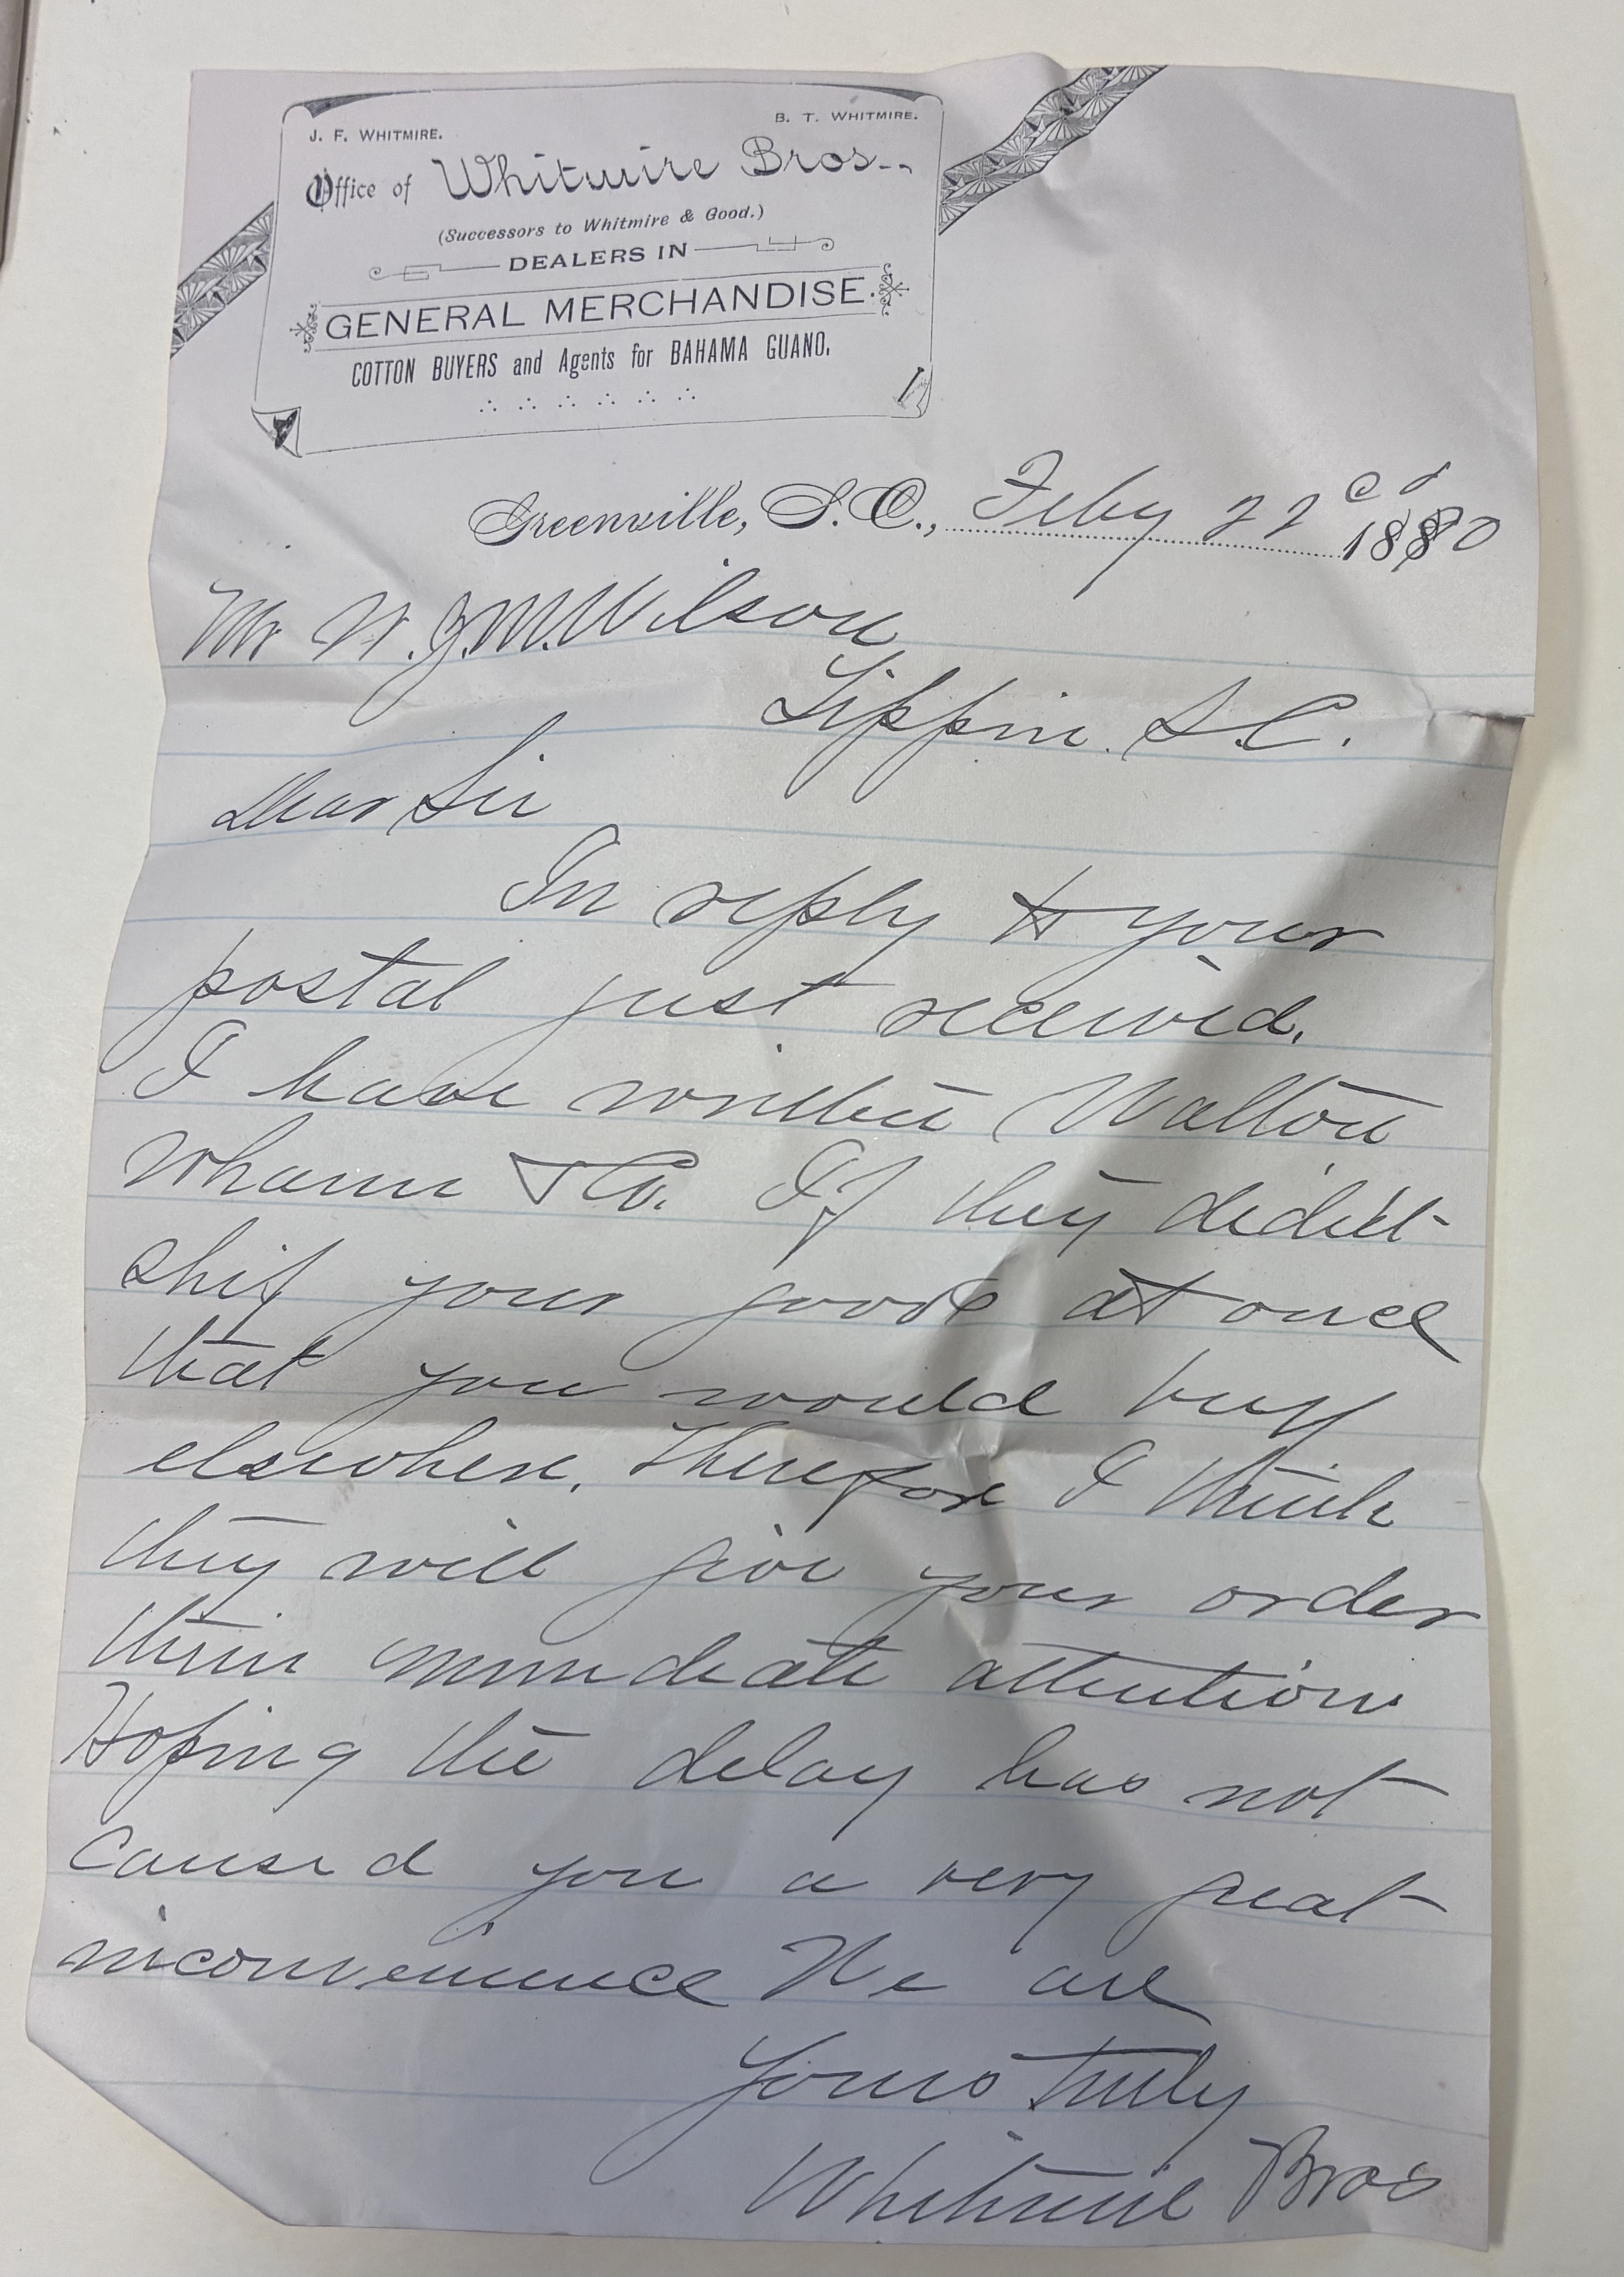 J. F. WHITMIRE.
B. T. WHITMIRE.
Office of Whitmire Bros.,
(Successors to Whitmire & Good.)
DEALERS IN
GENERAL MERCHANDISE.
COTTON BUYERS and Agents for BAHAMA GUANO.
Greenville, S. C., Feby 22cd 1890
Mr W. J. M. Wilson
Tippin. S.C.
Dear Sir
In reply to your
postal just received.
I have written Walton
Whann & Co. If they didn't
ship your goods at once
that you would buy
elsewhere. Therefore I think
they will give your order
their immediate attention
Hoping the delay has not
caused you a very great
inconvenience We are
Yours truly
Whitmire Bros